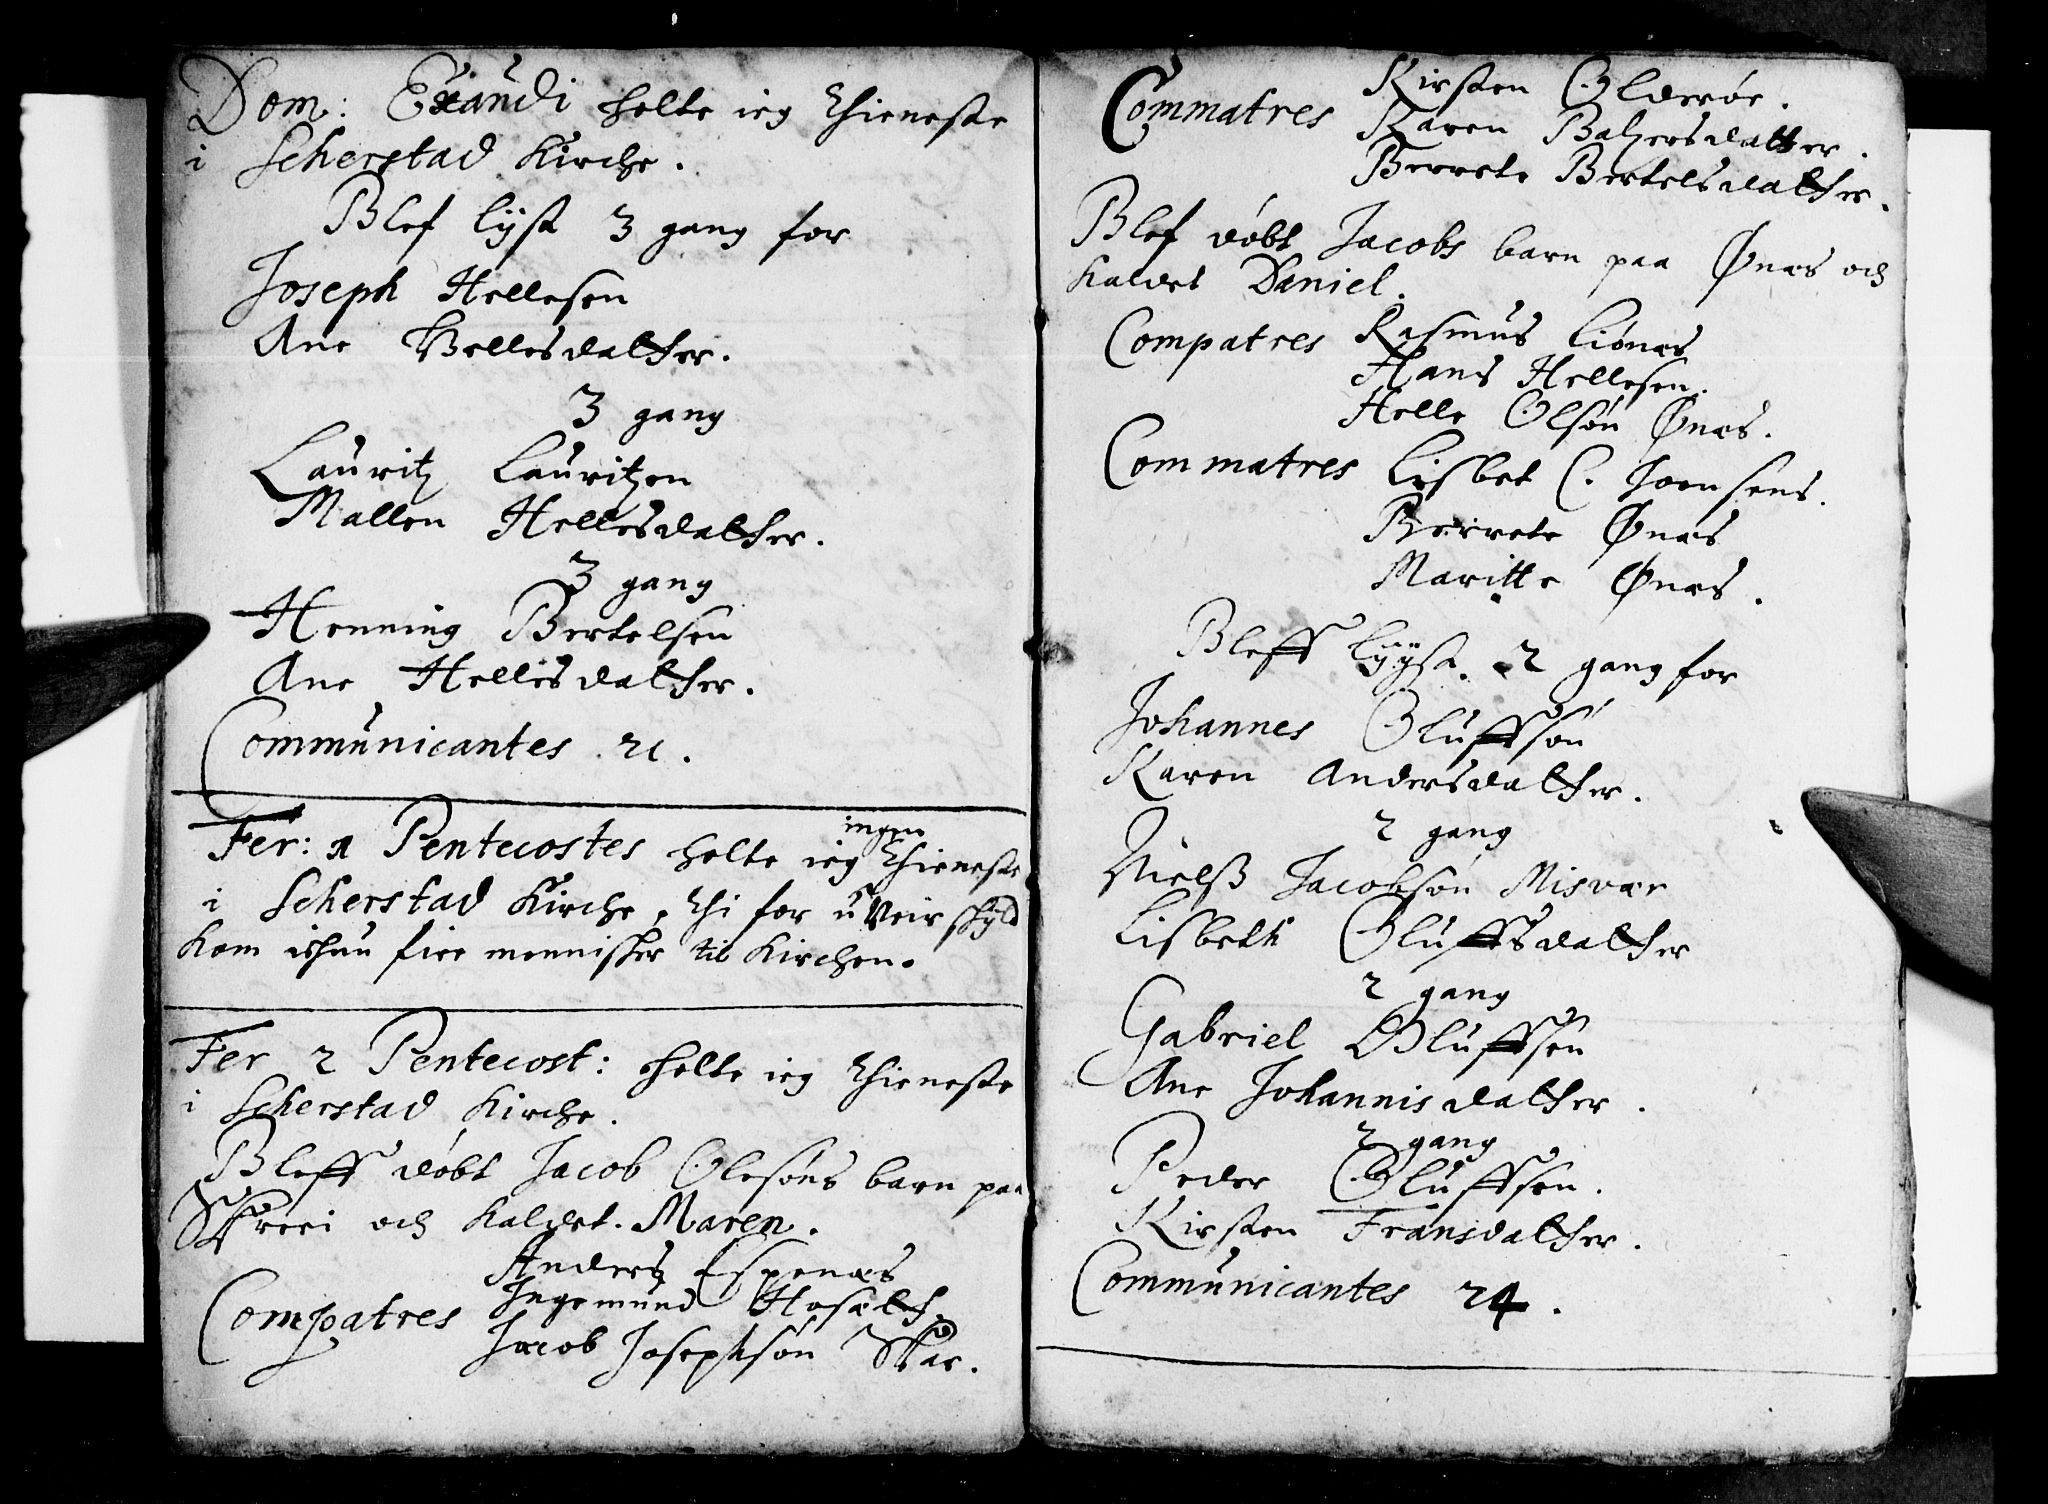 Dom: Exaudi holte ieg thieneste
i Scherstad Kirche.
Blef lyst 3 gang for
Joseph Hellesen
Ane Vellesdatther.
3 gang
Lauritz Lauritzen
Mallen Hellesdatther.
3 gang
Henning Bertelsen
Ane Hellisdatther.
Communicantes 21.
Fer: 1 Pentecostes holte ieg ingen thieneste
i Scherstad Kirche, thi for uveir skyld
kom ichun fire mennisker til Kirchen.
Fer 2 Pentecost: holte ieg thieneste
i Scherstad Kirche.
Bleff døbt Jacob Olesøns barn paa
och kaldet. Maren.
Compatres Anders Espenæs
Ingemund
Jacob Josephsøn Skar.
Commatres Kirsten Olderøe.
Karen Baltzersdatter.
Berrete Bertelsdatther.
Blef døbt Jacobs barn paa Ønæs och
kaldet Daniel.
Compatres Rasmus Liønæs
Hans Hellesen.
Helle Olsøn Ønæs.
Commatres Lisbet C. Joensens.
Berrete Ønæs
Maritte Ønæs.
Bleff lyyst. 2 gang for
Johannes Oluffsøn
Karen Andersdatther.
2 gang
Nielss Jacobsøn Misvær
Lisbeth Oluffsdatther
2 gang
Gabriel Oluffsøn
Ane Johannisdatther.
2 gang
Peder Oluffsen.
Kirsten Fransdatther.
Communicantes 24.